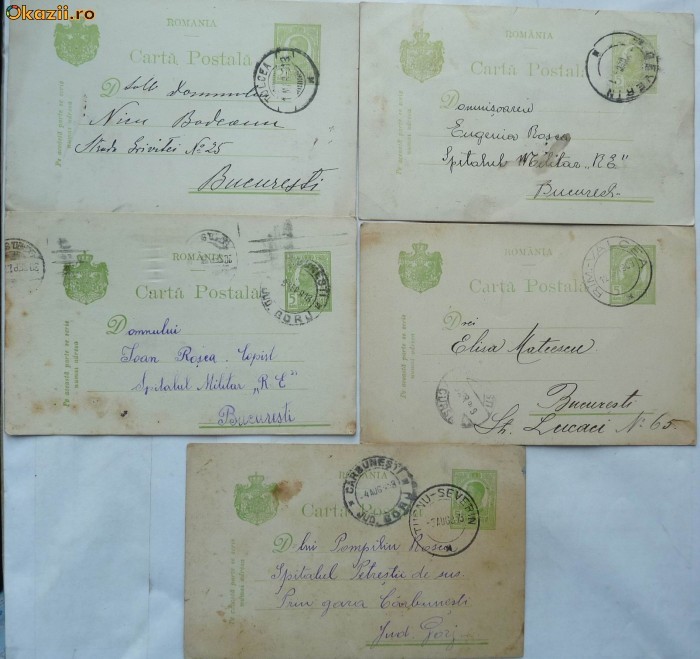 Okazii.ro
ROMANIA
Cartă Postală
Pe această parte se scrie
numai adresa
VALCEA
Domnului
Nicu Bodeanu
Strada Grivitei No 25
Bucuresti
ROMANIA
Carta Postala
Pe această parte se scrie
numai adresa
SEVERIN
Domnisoarei
Eugenia Roșca
Spitalul Militar „R.E"
Bucuresti
ROMANIA
Cartă Postală
Pe această parte se scrie
numai adresa
5
JUD. GORJ
Domnului
Ioan Roșca. Copist
Spitalul Militar „R.E"
București
ROMANIA
Carta Postală
Pe această parte se scrie
numai adresa
RIM-VALCEA
D-rei
Elisa Mateescu
Bucuresti
Sh. Lucaci No 65
ROMANIA
Cartă Postală
Pe această parte se scrie
numai adresa
CĂRBUNEȘTI
JUD. GORJ
TURNU-SEVERIN
D-lui Pompiliu Roșca
Spitalul Petrestii de sus
Prin gara Cărbunești
Jud Gorj